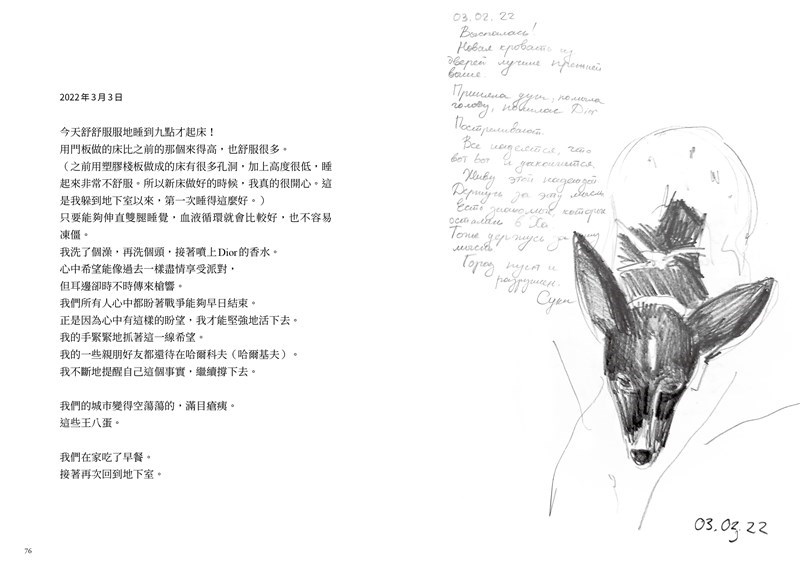 2022 年 3 月 3 日
今天舒舒服服地睡到九點才起床！
用門板做的床比之前的那個來得高，也舒服很多。
（之前用塑膠棧板做成的床有很多孔洞，加上高度很低，睡
起來非常不舒服。所以新床做好的時候，我真的很開心。這
是我躲到地下室以來，第一次睡得這麼好。）
只要能夠伸直雙腿睡覺，血液循環就會比較好，也不容易
凍僵。
我洗了個澡，再洗個頭，接著噴上 Dior 的香水。
心中希望能像過去一樣盡情享受派對，
但耳邊卻時不時傳來槍響。
我們所有人心中都盼著戰爭能夠早日結束。
正是因為心中有這樣的盼望，我才能堅強地活下去。
我的手緊緊地抓著這一線希望。
我的一些親朋好友都還待在哈爾科夫（哈爾基夫）。
我不斷地提醒自己這個事實，繼續撐下去。
我們的城市變得空蕩蕩的，滿目瘡痍。
這些王八蛋。
我們在家吃了早餐。
接著再次回到地下室。
76
03.02.22
Выспалась!
Новая кровать из
дверей лучше прежней
выше.
Приняла душ, помыла
голову, Dior
Постреливают.
Все надеются, что
вот вот и закончится.
Живу этой надеждой.
Держусь за эту мысль
Есть которые
остались в Ха
Тоже держусь за эту
мысль
Город пуст и
разрушен.
Суки
03.03.22